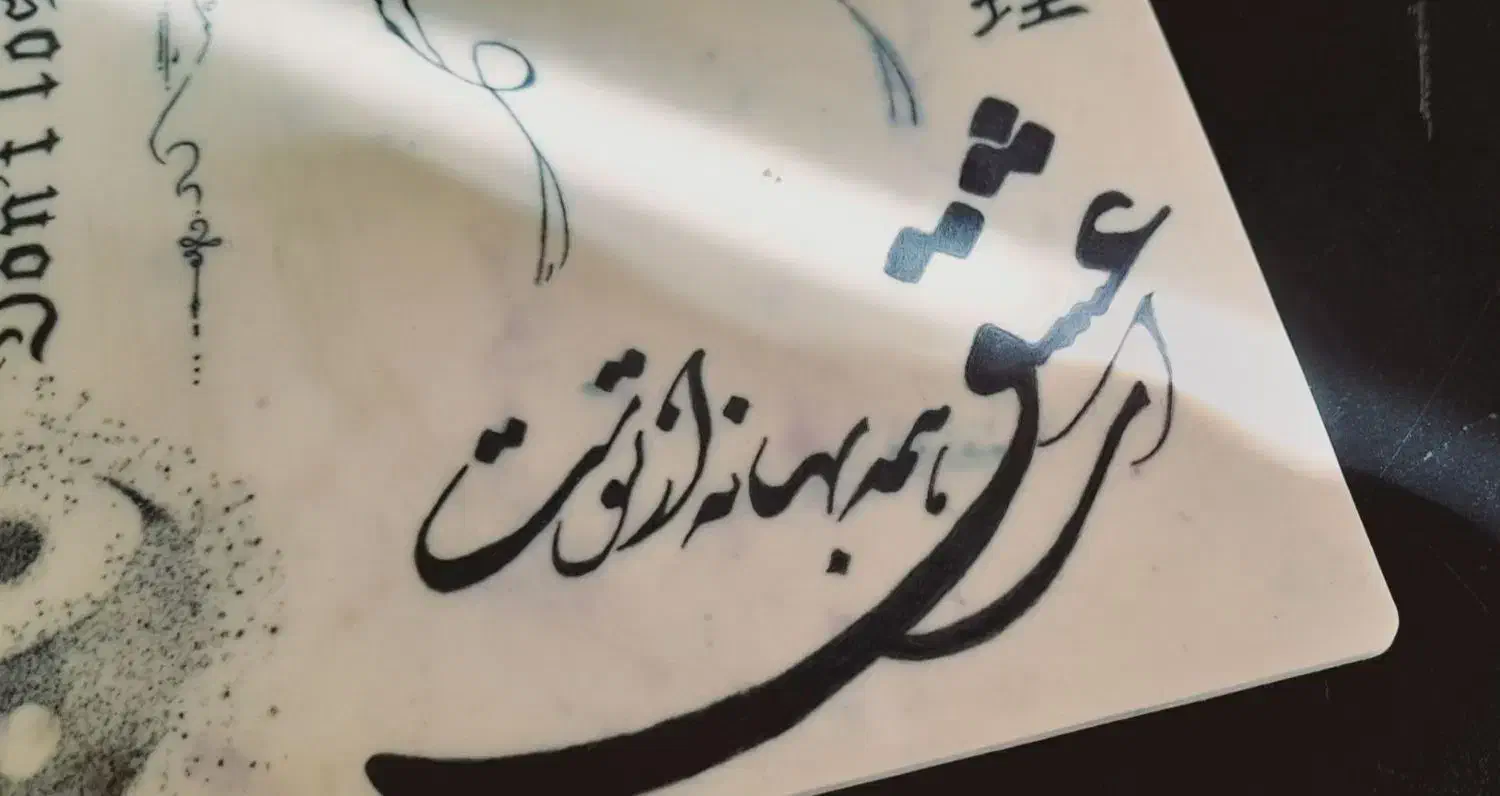 ای عشق
همه بهانه از توست
Don't